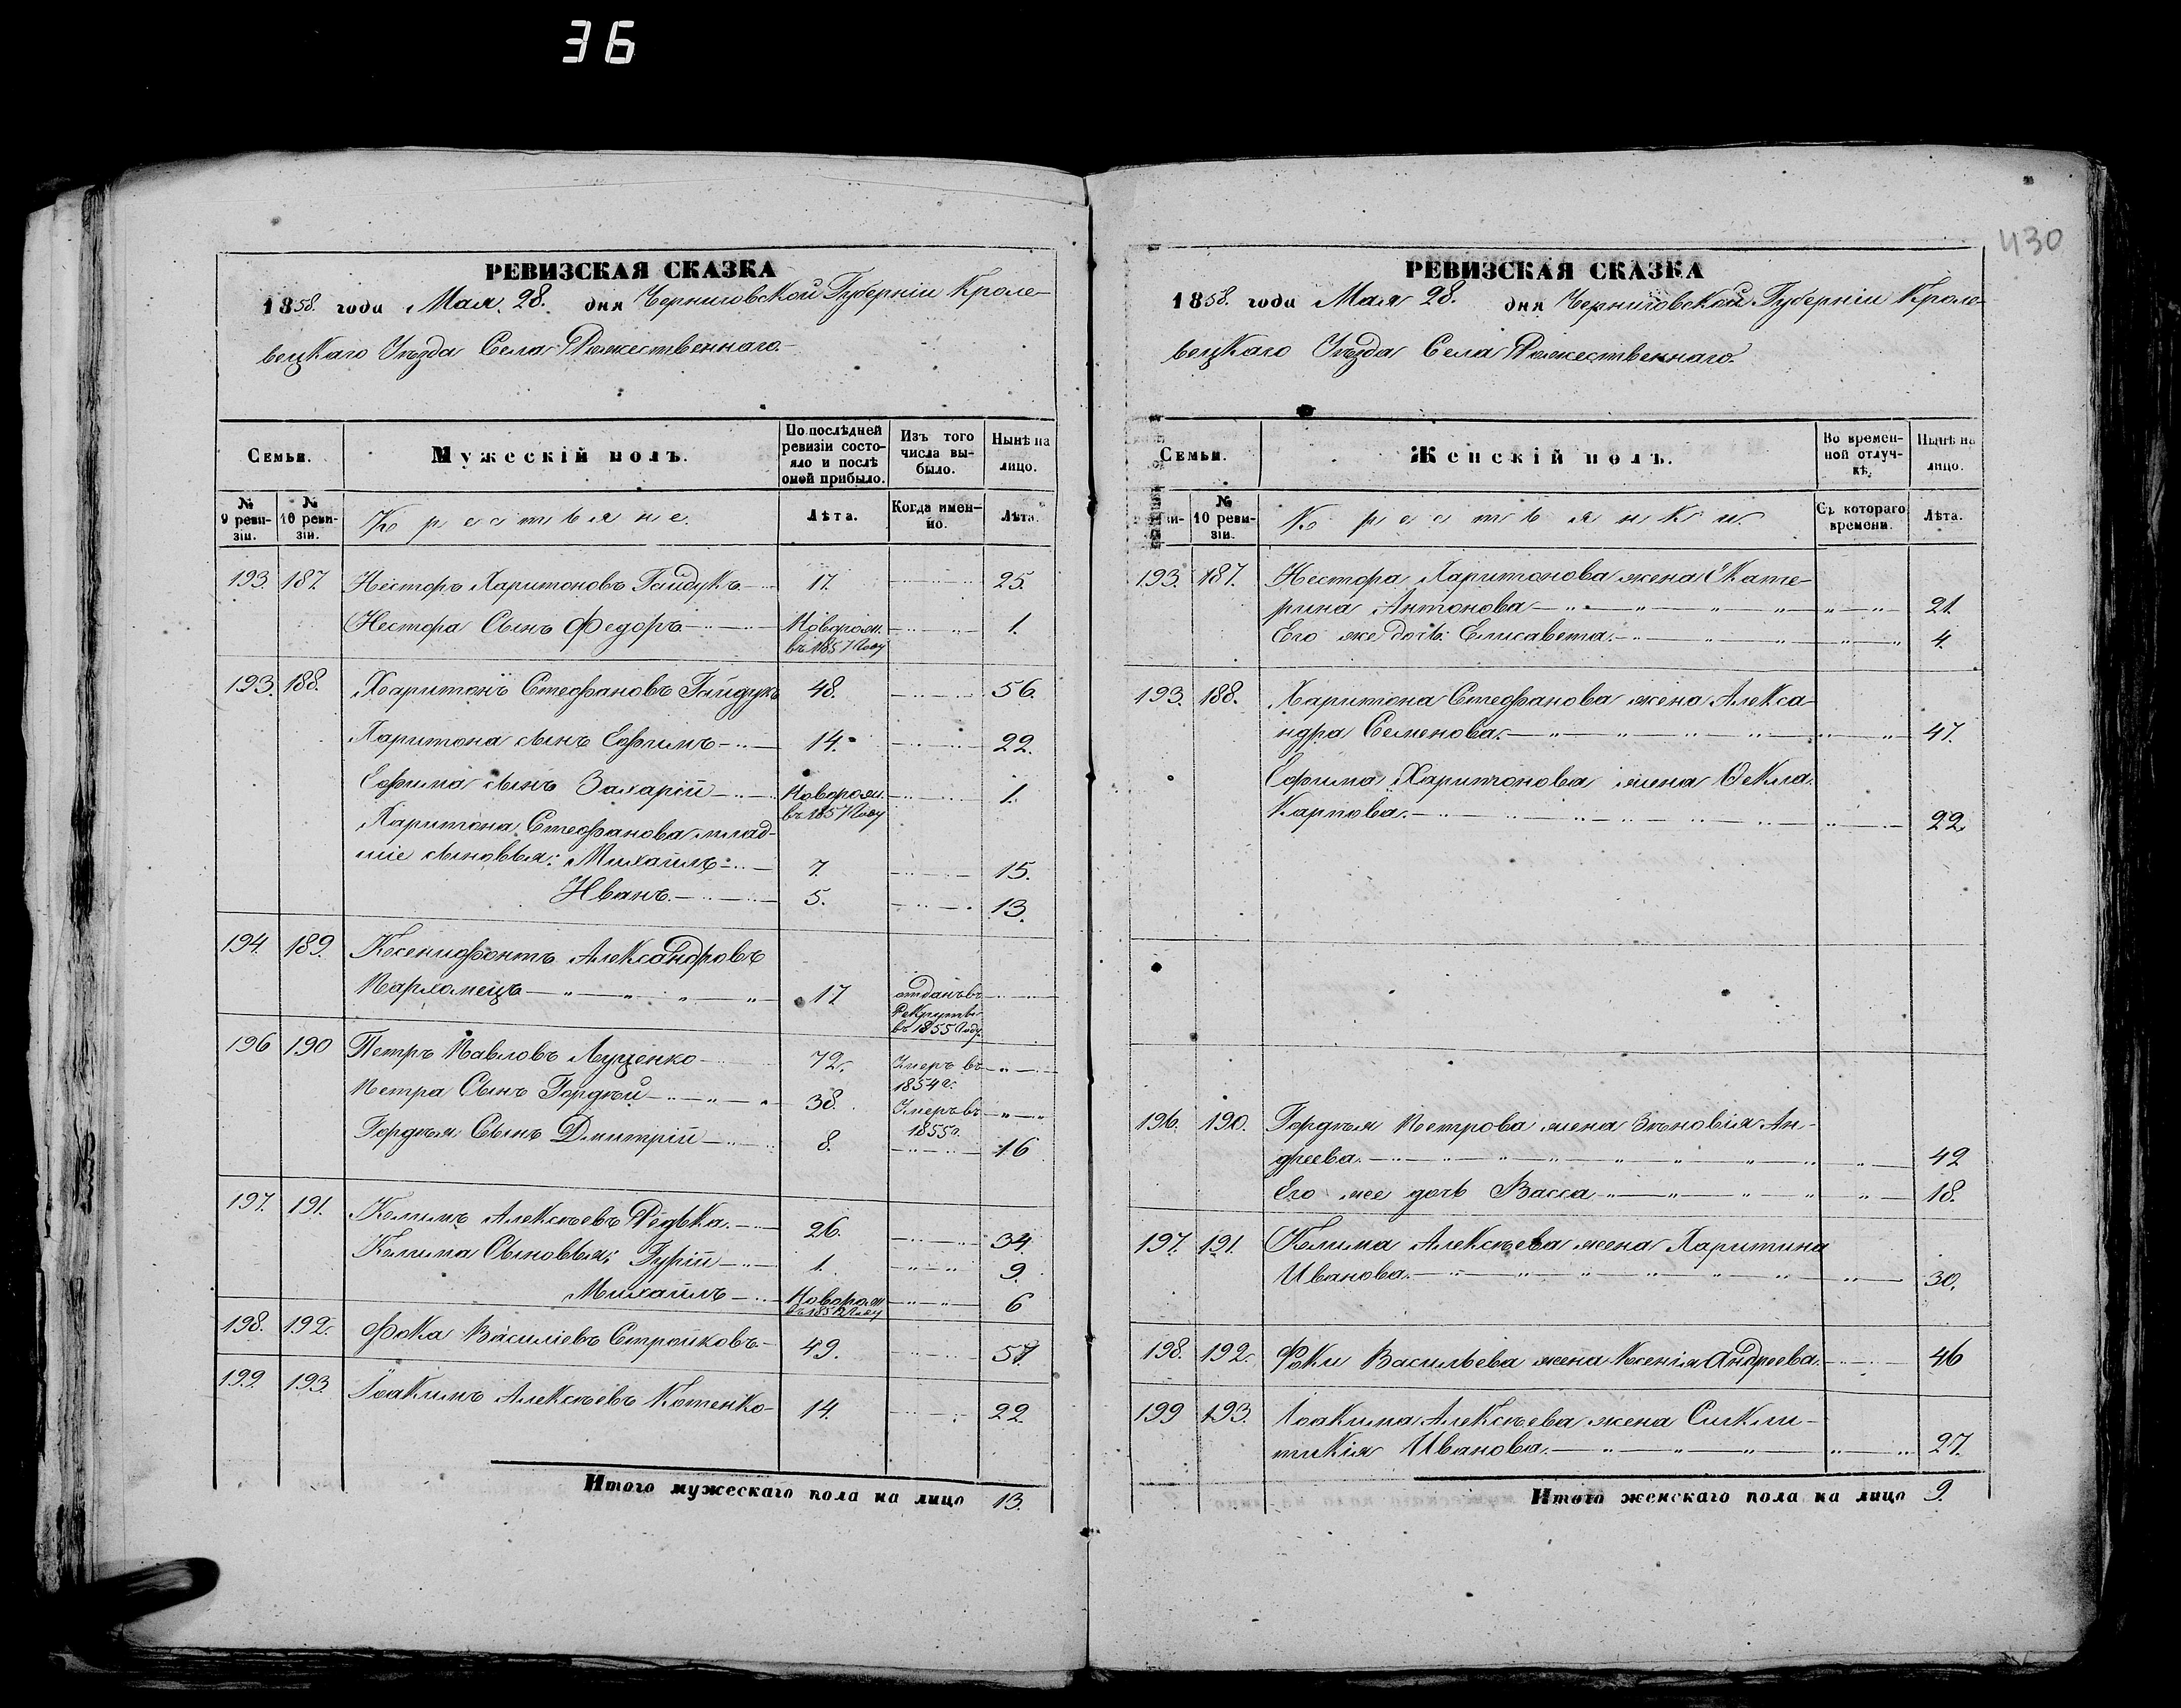 36
430
РЕВИЗСКАЯ СКАЗКА
1858. года Мая 28. дня Черниговской Губерніи Кроле-
вецкаго Уѣзда Села Рожественнаго.
Семьи.
Мужескій полъ.
По послѣдней ревизіи состо-
яло и послѣ оной прибыло.
Изъ того числа вы-
было.
Нынѣ на лицо.
№ 9 реви-
зіи.
№ 10 реви-
зіи.
Крестьяне.
Лѣта.
Когда имен-
но.
Лѣта.
193. 187. Несторъ Харитоновъ Гайдукъ 17. 25.
Нестора Сынъ Федоръ Новорож. 1.
въ 1857 году
193. 188. Харитонъ Стефановъ Гайдукъ 48. 56.
Харитона сынъ Ефимъ 14. 22.
Ефима сынъ Захарій Новорож. 1.
въ 1857 году
Харитона Стефанова млад-
шіе сыновья: Михаилъ 7. 15.
Иванъ 5. 13.
194. 189. Ксенифонтъ Александровъ
Пархомецъ 17 отданъ въ
Рекруты
въ 1855 году
196 190 Петръ Павловъ Луценко 72. Умеръ въ
1854 г.
Петра Сынъ Гордѣй 38. Умеръ въ
1855 г.
Гордѣя Сынъ Дмитрій 8. 16
197. 191. Климъ Алексѣевъ Рѣдька 26. 34.
Клима Сыновья: Гурій 1. 9.
Михаилъ Новорож. 6
въ 1852 году
198. 192. Фока Василіевъ Строжковъ 49. 57.
199. 193. Іоакимъ Алексѣевъ Котенко 14. 22.
Итого мужескаго пола на лицо 13.
РЕВИЗСКАЯ СКАЗКА
1858. года Мая 28. дня Черниговской Губерніи Кроле-
вецкаго Уѣзда Села Рожественнаго.
Семьи.
Женскій полъ.
Во времен-
ной отлуч-
кѣ.
Нынѣ на лицо.
№ 10 реви-
зіи.
Крестьянки.
Съ котораго времени.
Лѣта.
193. 187. Нестора Харитонова жена Екате-
рина Антонова 21.
Его же дочь Елисавета. 4.
193. 188. Харитона Стефанова жена Алекса-
ндра Семенова. 47.
Ефима Харитонова жена Ѳекла
Карпова. 22.
196. 190. Гордѣя Петрова жена Зѣновія Ан-
дреева. 42
Его же дочь Васса 18.
197. 191. Клима Алексѣева жена Харитина
Иванова. 30.
198. 192. Фоки Васильева жена Ксенія Андреева. 46
199 193. Іоакима Алексѣева жена Сикли-
тикія Иванова. 27.
Итого женскаго пола на лицо 9.